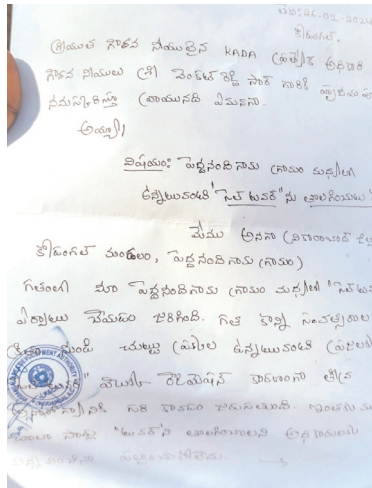 తేది:26-02-2024
కొడంగల్.
శ్రీయుత గౌరవ నీయులైన KADA ప్రత్యేక అధికారి
గౌరవ నీయులు శ్రీ వెంకట్ రెడ్డి సార్ గారికి
నమస్కరిస్తూ వ్రాయునది ఏమనగా.
అయ్యా!
విషయం: పెద్దనందిగామ గ్రామం మధ్యలో
ఉన్నటువంటి "సెల్ టవర్"ను తొలగించుట
మేము అనగా (వికారాబాద్
కొడంగల్ మండలం, పెద్దనందిగామ గ్రామం)
గతంలో మా పెద్దనందిగామ గ్రామం మధ్యలో "సెల్
ఏర్పాటు చేయడం జరిగింది. గత కొన్ని సంవత్సరాల
నుండి చుట్టు ప్రక్కల ఉన్నటువంటి
రేడియేషన్ కారణంగా తీవ్ర
గురి కావడం జరుగుతుంది.
"టవర్"ని తొలగించాలని అధికారులకు